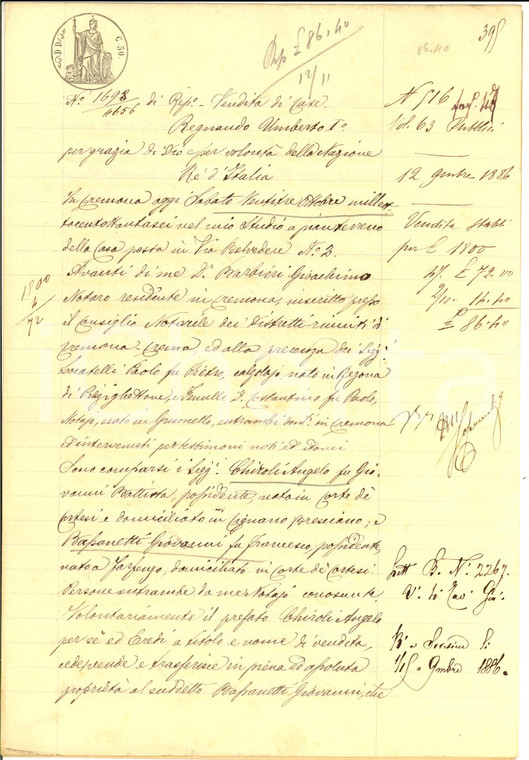 395
86.40
Rep £ 86.40
12/11
C. 50.
N.° 1698/4656 di Rep.° Vendita di Case
Regnando Umberto I.°
per grazia di Dio e per volontà della Nazione
Rè d'Italia
In Cremona oggi Sabato Ventitre Ottobre mille
tocentottantasei nel mio Studio a pian terreno
della Casa posta in Via Belvedere N.° 2.
Avanti di me D.r Barbieri Gioachino
Notaro residente in Cremona, inscritto presso
il Consiglio Notarile dei Distretti riuniti di
Cremona Crema, ed alla presenza dei Sigg.i
Locatelli Paolo fu Pietro, nato in Regona
di Pizzighettone, e D. Costantino fu Paolo,
Notajo, nato in Grumello, entrambi in Cremona
ed intervenuti per testimoni noti ed idonei
Sono comparsi i Sigg.i Chiroli Angelo fu Gio
vanni Battista, possidente, nato in Corte de'
Cortesi e domiciliato in Cignano Bresciano; e
Bassanetti Giovanni fu Francesco, possidente,
nato a Farfengo, domiciliato in Corte de' Cortesi
Persone entrambe da me Notajo conosciute
Volontariamente il prefato Chiroli Angelo
per sè ed Eredi, a titolo e nome di vendita,
cede, vende e trasferisce in piena ed assoluta
proprietà al suddetto Bassanetti Giovanni, che
1800
4
72
N 516
Vol. 63 Pubblici
12 9mbre 1886
Vendita Stabili
per £ 1800
£ 72.00
2/10 14.40
£ 86.40
B. N.° 2267.
1886.